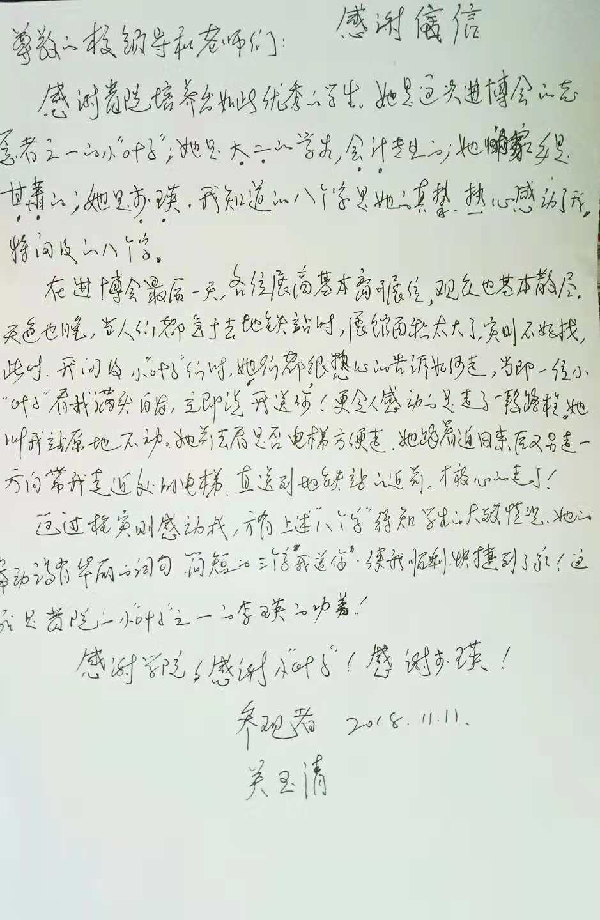 感谢信
尊敬的校领导和老师们:
感谢贵院培养出如此优秀的学生。她是这次进博会的志
愿者之一的小“叶子”;她是大二的学生,会计专业的;她家乡是
甘肃的;她是李瑛。我知道的八个字是她的真挚、热心感动了我,
特问及的八个字。
在进博会最后一天,各位展商基本离开展位,观众也基本散尽。
天色也晚,当人们都急于去地铁站时,展馆面积太大了,实则不好找,
此时,我问及小“叶子”们时,她们都很热心的告诉如何走,当即一位小
“叶子”看我满头白发,立即说我送您!更令人感动的是走了一段路程,她
叫我站原地不动,她前去看是否电梯方便走,她跑着返回来后又另走一
方向带我走近处的电梯,直送到地铁站的近前,才放心的走了!
这过程实则感动我,方有上述“八个字”得知学生的大致情况。她的
举动没有华丽的词句,简短的三个字“我送您”,使我顺利快捷到了家!这
就是贵院的小“叶子”之一的李瑛的功着!
感谢学院!感谢小“叶子”!感谢李瑛!
参观者 2018.11.11.
吴玉清